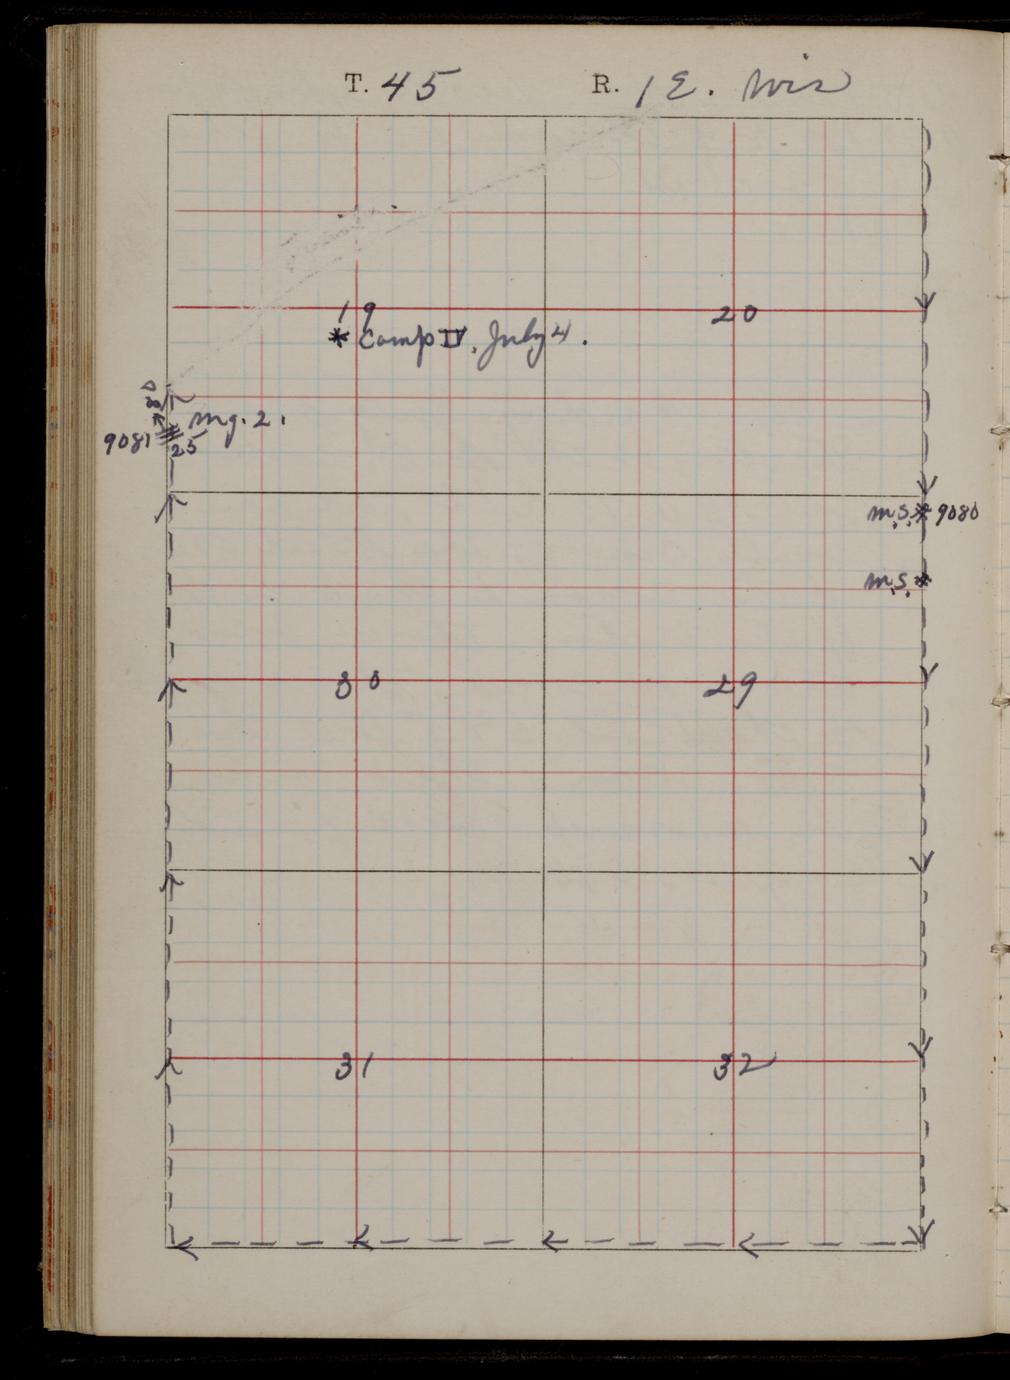 T. 45 R. 1 E. Wis
19 20
* Camp IV, July 4.
80
mg. 2.
9081 25
m.s. 9080
m.s.
30 29
31 32